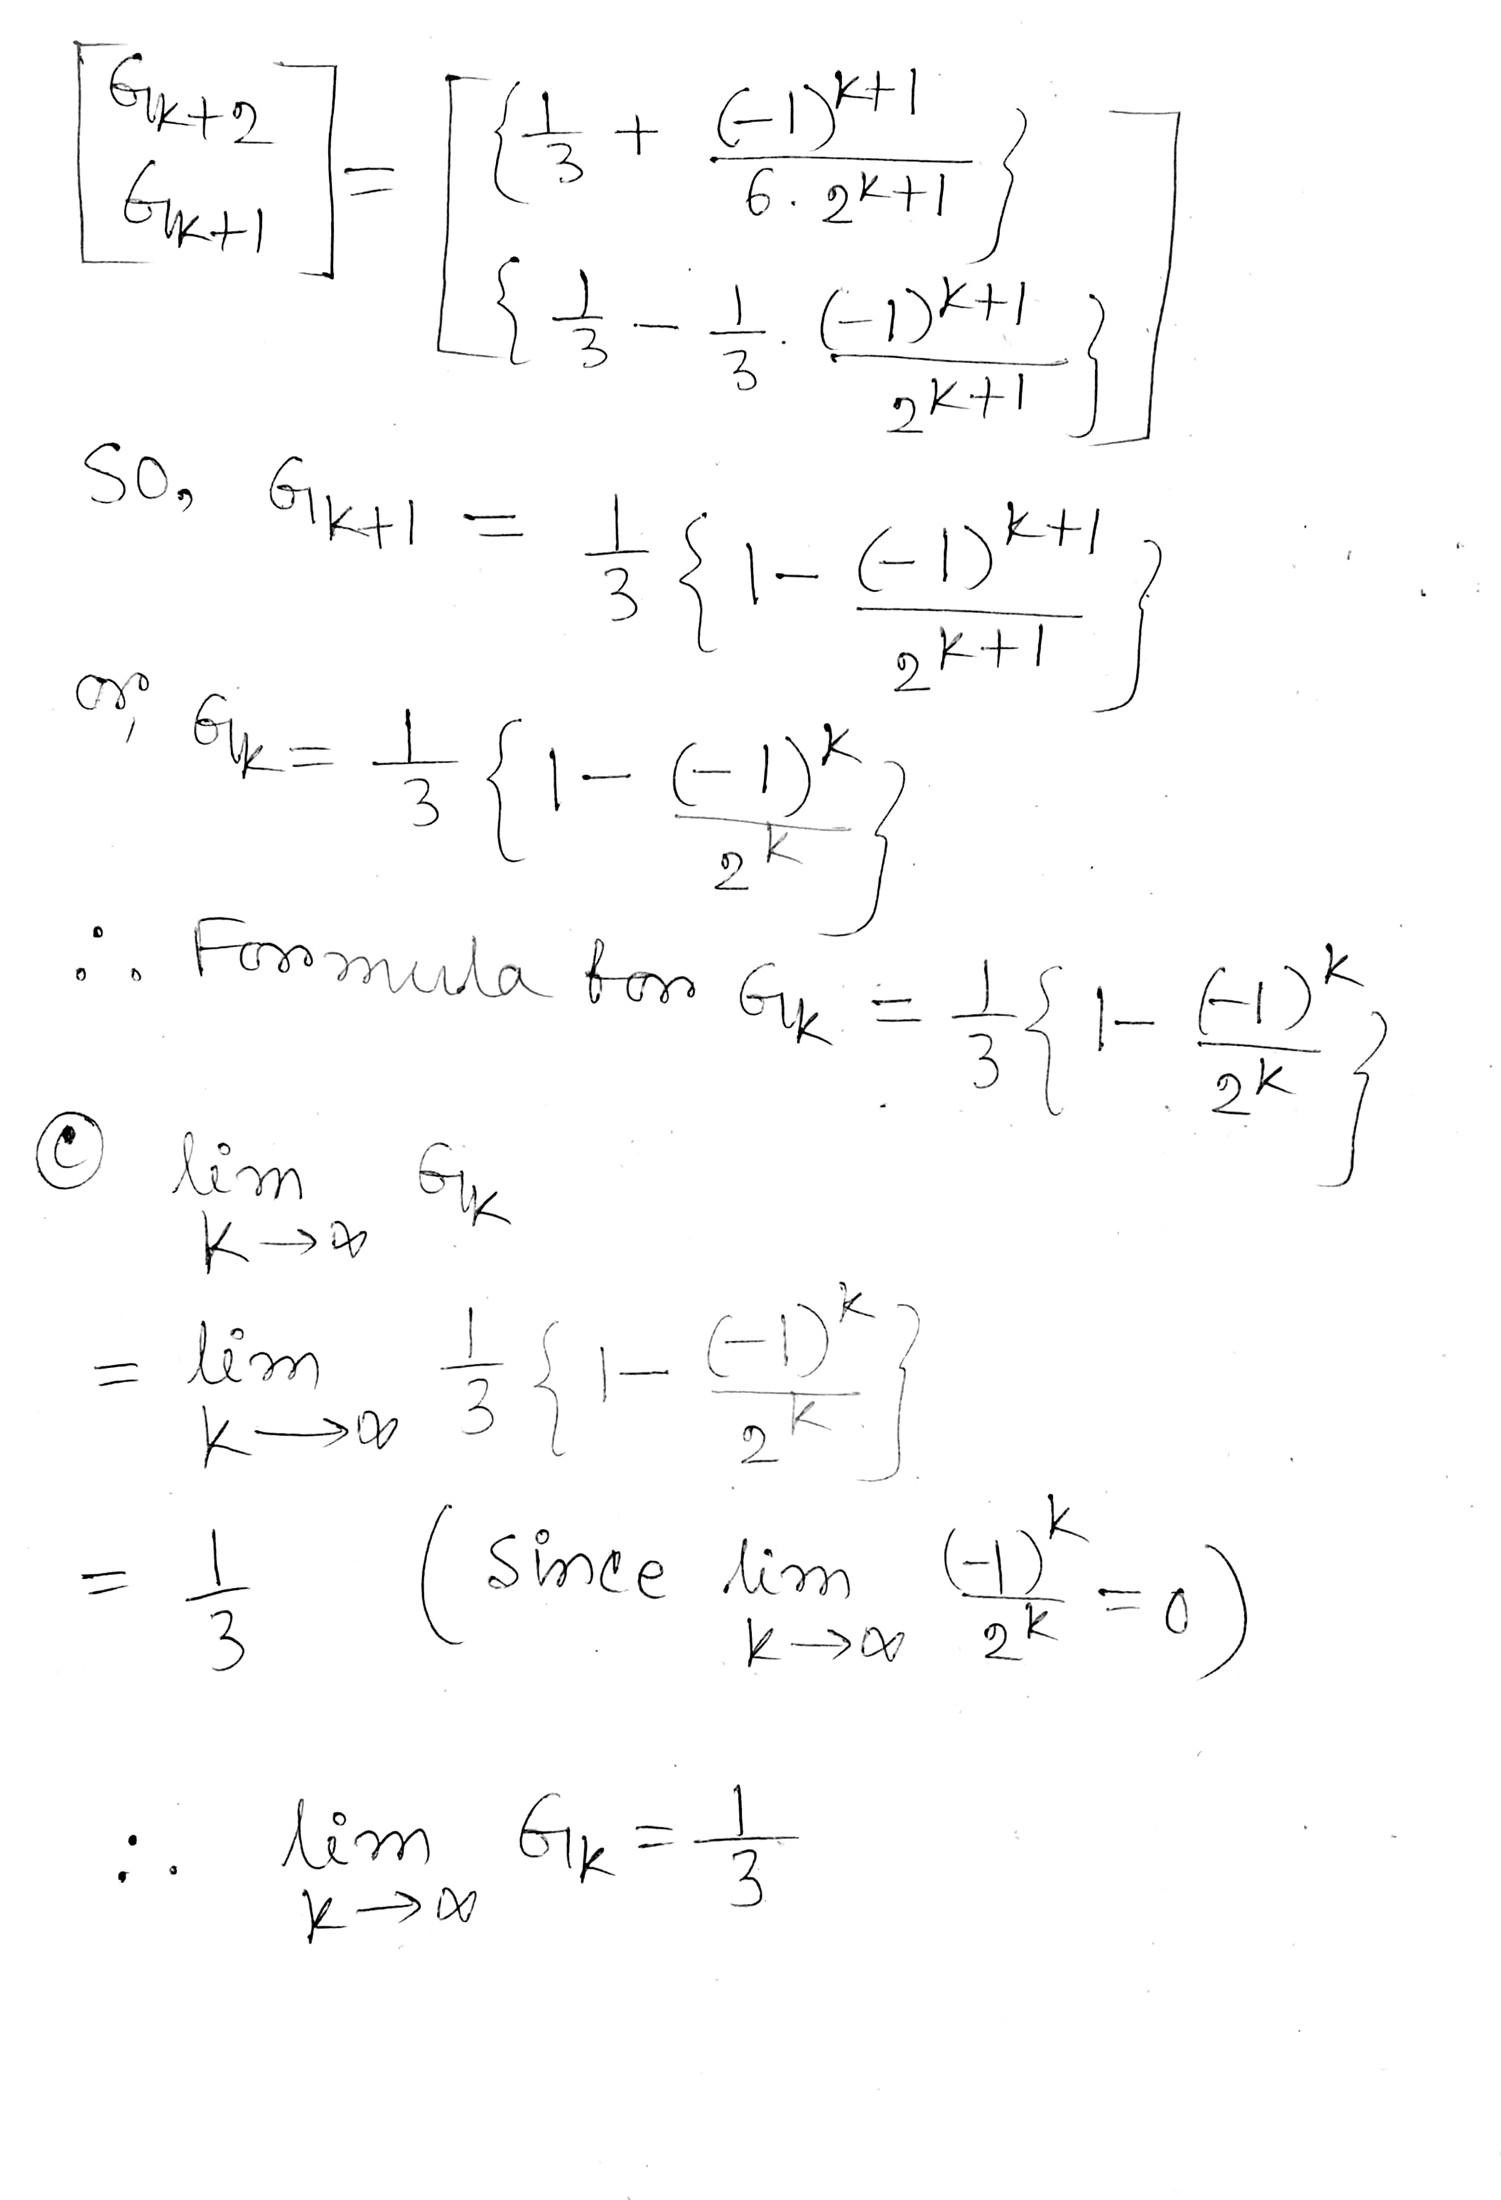 [G_{k+2} G_{k+1}] = [{1/3 + (-1)^{k+1}/(6·2^{k+1})} {1/3 - 1/3·(-1)^{k+1}/2^{k+1}}]
SO, G_{k+1} = 1/3 {1 - (-1)^{k+1}/2^{k+1}}
or, G_k = 1/3 {1 - (-1)^k/2^k}
∴ Formula for G_k = 1/3 {1 - (-1)^k/2^k}
ⓒ lim_{k→∞} G_k
= lim_{k→∞} 1/3 {1 - (-1)^k/2^k}
= 1/3 (Since lim_{k→∞} (-1)^k/2^k = 0)
∴ lim_{k→∞} G_k = 1/3